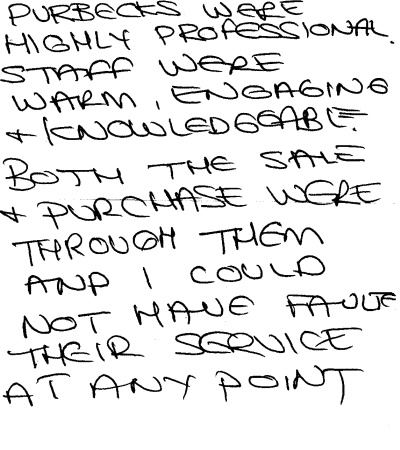 PURBECKS WERE
HIGHLY PROFESSIONAL.
STAFF WERE
WARM, ENGAGING
+ KNOWLEDGEABLE.
BOTH THE SALE
+ PURCHASE WERE
THROUGH THEM
AND I COULD
NOT HAVE FAULTE
THEIR SERVICE
AT ANY POINT